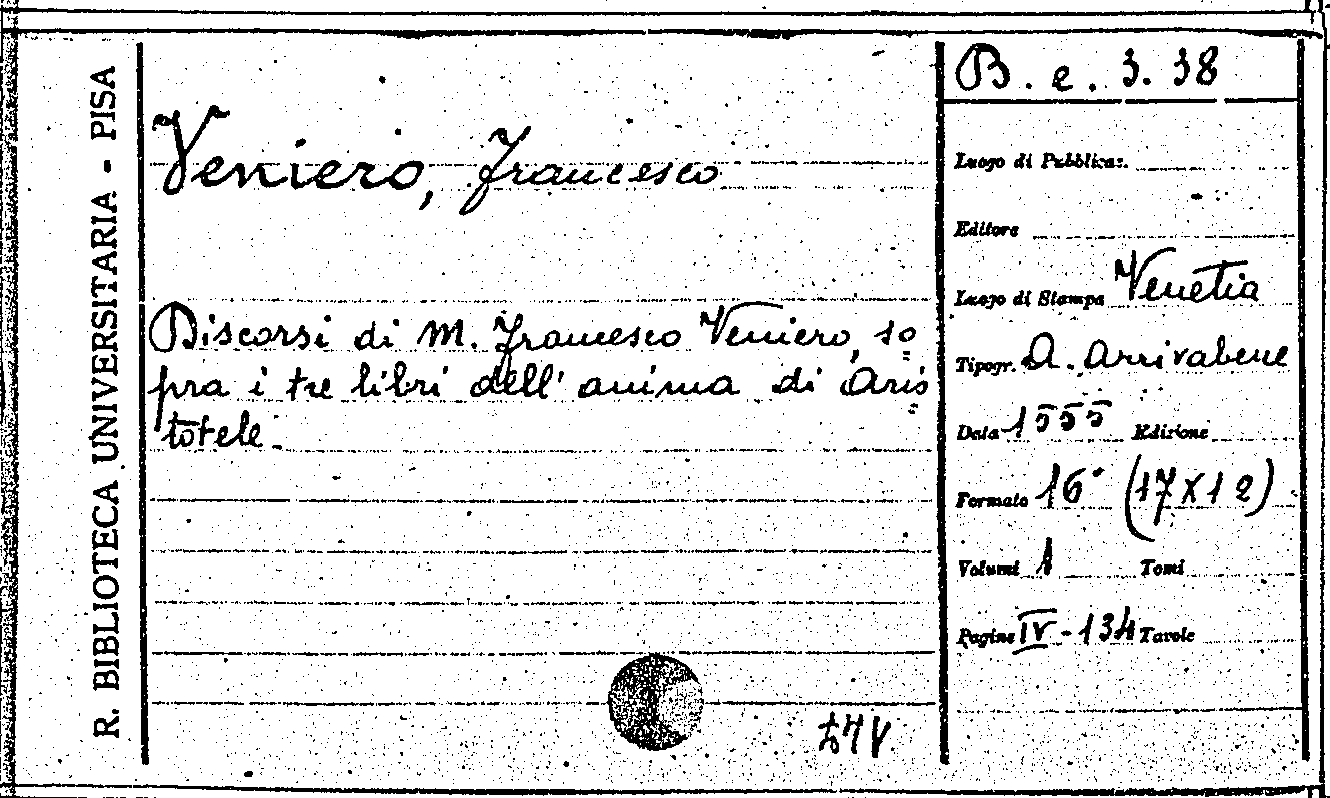 R. BIBLIOTECA UNIVERSITARIA - PISA
B. e. 3. 38
Veniero, Francesco
Discorsi di M. Francesco Veniero, so=
pra i tre libri dell' anima di Aris=
totele.
Luogo di Pubblicaz.
Editore
Luogo di Stampa Venetia
Tipogr. A. Arrivabene
Data 1555 Edizione
Formato 16° (17X12)
Volumi 1 Tomi
Pagine IV-134 Tavole